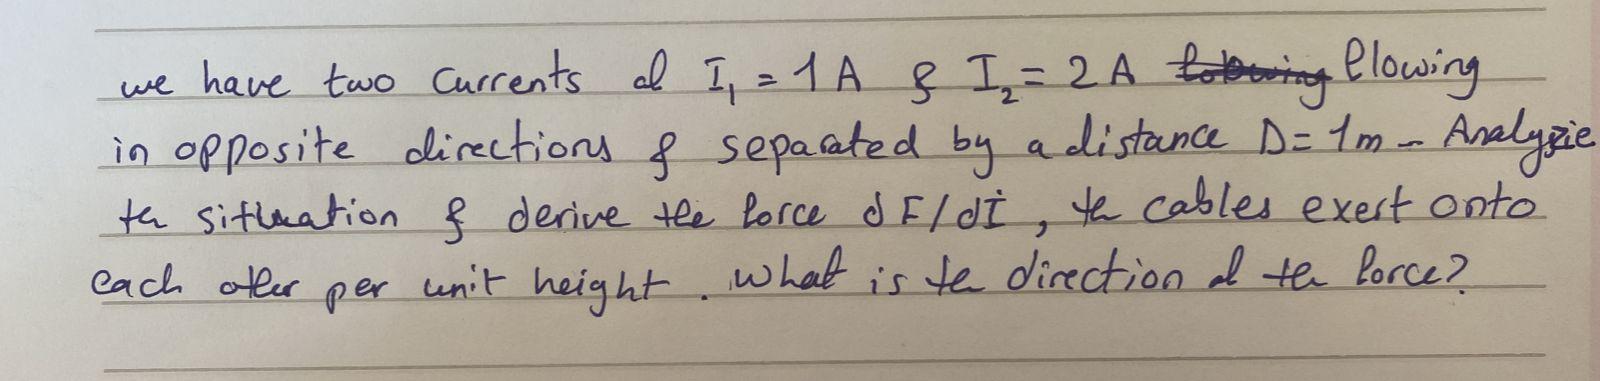 we have two currents of I₁ = 1A & I₂ = 2A flowing
in opposite directions & separated by a distance D = 1m - Analyzie
the situation & derive the force dF/dI, the cables exert onto
each other per unit height. What is the direction of the force?